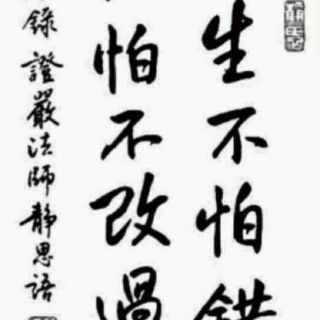 生不怕錯
怕不改過
錄 證嚴法師靜思語